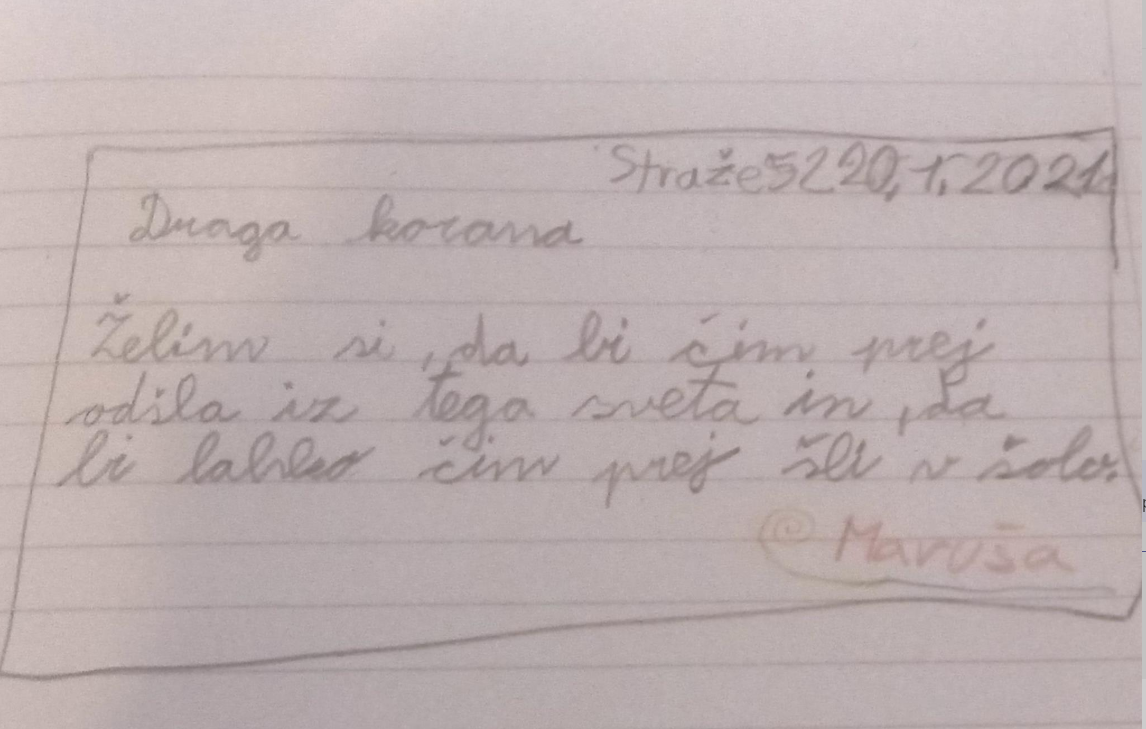 Straže 52 20.1.2021
Draga korana
Želim si, da bi čim prej
odšla iz tega sveta in, da
bi lahko čim prej šli v šolo.
@ Maruša